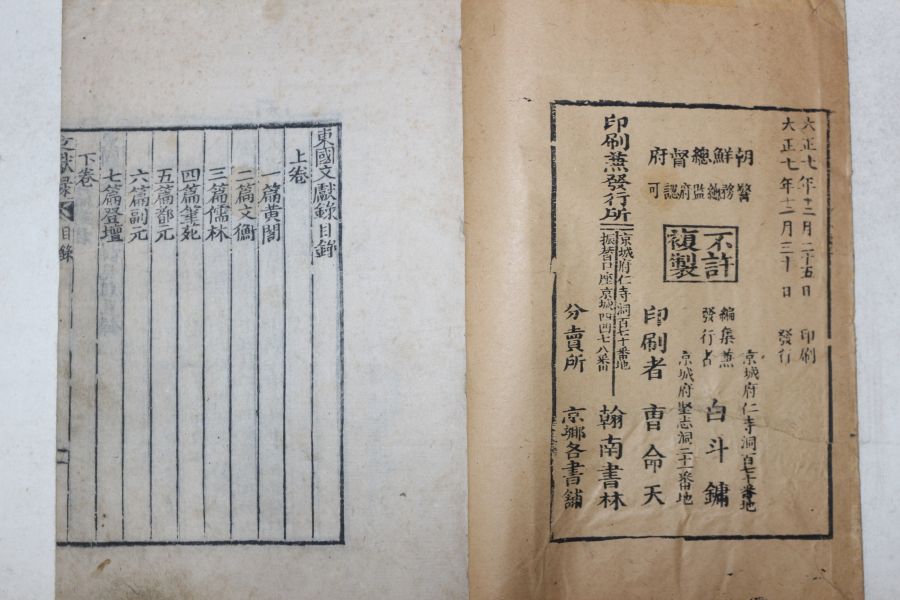 大正七年十二月二十五日 印刷
大正七年十二月三十日 發行
朝鮮總督府
警務總監府認可
不許
複製
京城府仁寺洞百七十番地
編集兼
發行者
白斗鏞
京城府堅志洞三十二番地
印刷者 曹命天
印刷兼發行所
京城府仁寺洞百七十番地
振替口座京城四四七八番
翰南書林
分賣所 京鄉各書舖
東國文獻錄目錄
上卷
一篇黃閣
二篇文衡
三篇儒林
四篇筆苑
五篇都元
六篇副元
七篇登壇
下卷
文獻錄 目錄